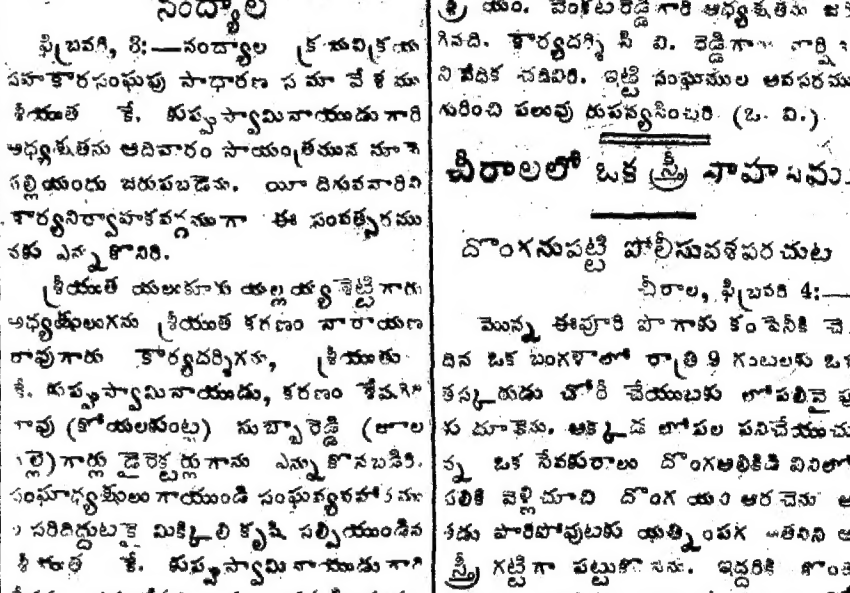 నంద్యాల
ఫిబ్రవరి, 3:—నంద్యాల క్రయవిక్రయ
సహకారసంఘపు సాధారణ సమావేశము
శ్రీయుత కే. కుప్పుస్వామినాయుడు గారి
అధ్యక్షతను ఆదివారం సాయంత్రమున
జరుపబడెను. యీ దిగువవారిని
కార్యనిర్వాహకవర్గముగా ఈ సంవత్సరము
నకు ఎన్నుకొనిరి.
శ్రీయుత యల్లయ్య శెట్టి గారు
అధ్యక్షులుగను శ్రీయుత కరణం నారాయణ
రావుగారు కార్యదర్శిగను, శ్రీయుత
కే. కుప్పుస్వామినాయుడు, కరణం
రావు (కోయలకుంట్ల) సుబ్బారెడ్డి
గార్లు డైరెక్టర్లుగాను ఎన్నుకొనబడిరి.
సంఘాధ్యక్షులుగాయుండి
సరిదిద్దుటకై మిక్కిలి కృషి సల్పియుండిన
శ్రీయుత కే. కుప్పుస్వామినాయుడు గారి
శ్రీ యం. వెంకటరెడ్డి గారి అధ్యక్షతను
గినది. కార్యదర్శి సి వి. రెడ్డిగారు
నివేదిక చదివిరి. ఇట్టి సంఘముల అవసరము
గురించి పలువు రుపన్యసించిరి. (ఒ. వి.)
చీరాలలో ఒక స్త్రీ సాహసము
దొంగనుపట్టి పోలీసువశపరచుట
చీరాల, ఫిబ్రవరి 4:—
మొన్న ఈవూరి పొగాకు కంపెనీకి చె
దిన ఒక బంగళాలో రాత్రి 9 గంటలకు ఒక
తస్కరుడు చోరీ చేయుటకు లోపలివైపు
కు దూకెను. అక్కడ లోపల పనిచేయుచు
న్న ఒక సేవకురాలు దొంగఅలికిడి వినిలో
పలికి వెళ్లిచూచి దొంగ యని అరచెను
కడు పారిపోవుటకు యత్నింపగ అతనిని ఆ
స్త్రీ గట్టిగా పట్టుకొనెను. ఇద్దరికి కొంత